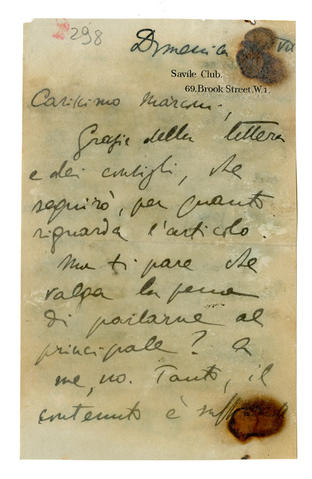 298
Domenica VII
Savile Club.
69, Brook Street, W.1.
Carissimo Marconi,
Grazie della lettera
e dei consigli, che
seguirò, per quanto
riguarda l'articolo.
Ma ti pare che
valga la pena
di parlarne al
principale? A
me, no. Tanto, il
contenuto è